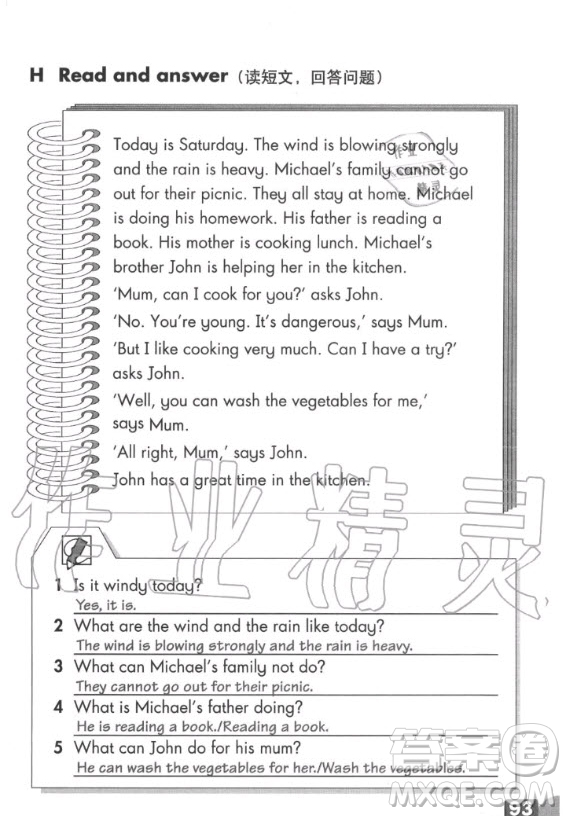 H Read and answer（读短文，回答问题）
Today is Saturday. The wind is blowing strongly
and the rain is heavy. Michael's family cannot go
out for their picnic. They all stay at home. Michael
is doing his homework. His father is reading a
book. His mother is cooking lunch. Michael's
brother John is helping her in the kitchen.
'Mum, can I cook for you?' asks John.
'No. You're young. It's dangerous,' says Mum.
'But I like cooking very much. Can I have a try?'
asks John.
'Well, you can wash the vegetables for me,'
says Mum.
'All right, Mum,' says John.
John has a great time in the kitchen.
作业精灵
1 Is it windy today?
Yes, it is.
2 What are the wind and the rain like today?
The wind is blowing strongly and the rain is heavy.
3 What can Michael's family not do?
They cannot go out for their picnic.
4 What is Michael's father doing?
He is reading a book./Reading a book.
5 What can John do for his mum?
He can wash the vegetables for her./Wash the vegetables.
答案圈
MXQE.COM
93